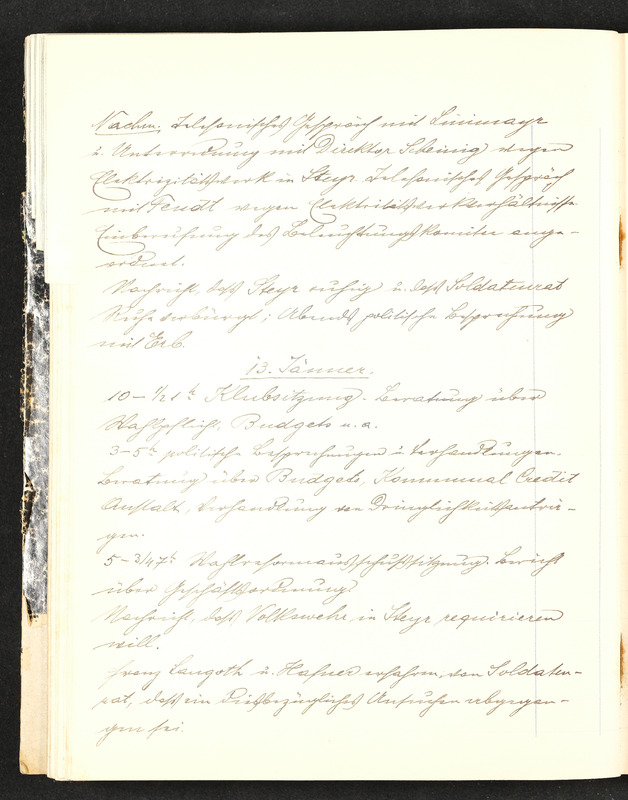 Nachm. Telefonisches Gespräch mit Linimayr
u. Unterredung mit Direktor Scheinig wegen
Elektrizitätswerk in Steyr. Telefonisches Gespräch
mit Fendt wegen Elektrizitätswerksverhältnisse
Einberufung des Beleuchtungskomitee ange-
ordnet.
Nachricht, daß Steyr ruhig u. daß Soldatenrat
Ruhe verbürgt; Abends politische Besprechung
mit Erb.
13. Jänner.
10 - 1/2 1 h Klubsitzung. Beratung über
Wahlpflicht, Budgets u. a.
3 - 5 h politische Besprechungen u. Verhandlungen.
Beratung über Budgets, Kommunal Credit
Anstalt, Verhandlung von Dringlichkeitsanträ-
gen.
5 - 3/4 7 h Wahlreformausschußsitzung. Bericht
über Geschäftsordnung.
Nachricht, daß Volkswehr in Steyr requirieren
will.
Franz Langoth u. Hafner erfahren, von Soldaten-
rat, daß ein diesbezügliches Ansuchen abgegan-
gen sei.